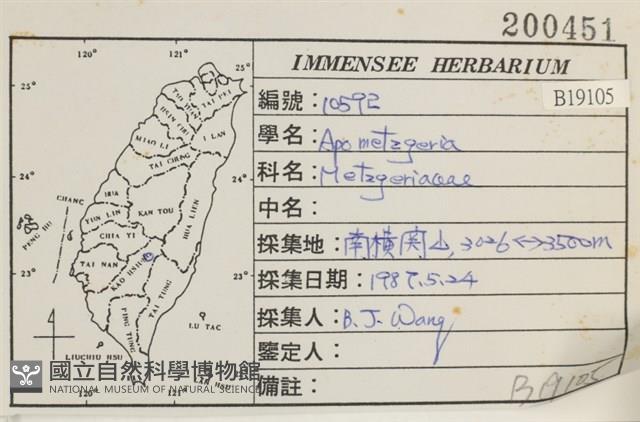 200451
IMMENSEE HERBARIUM
編號：10592
B19105
學名：Apometzgeria
科名：Metzgeriaceae
中名：
採集地：南橫関山, 3026↔3500m
採集日期：1987.5.24
採集人：B. J. Wang
鑒定人：
備註：
B19105
120° 121°
25° 25°
TAI PEI
I LAN
MIAO LI
TAI CHUNG
24° 24°
CHANG
HUA
YUN LIN
KAN TOU
HUA LIEN
PENG HU
CHIA YI
TAI NAN
KAO HSIUNG
23° 23°
TAI TUNG
PING TUNG
LU TAO
LIUCHIU HSU
LAN HSU
120° 121°
國立自然科學博物館
NATIONAL MUSEUM OF NATURAL SCIENCE